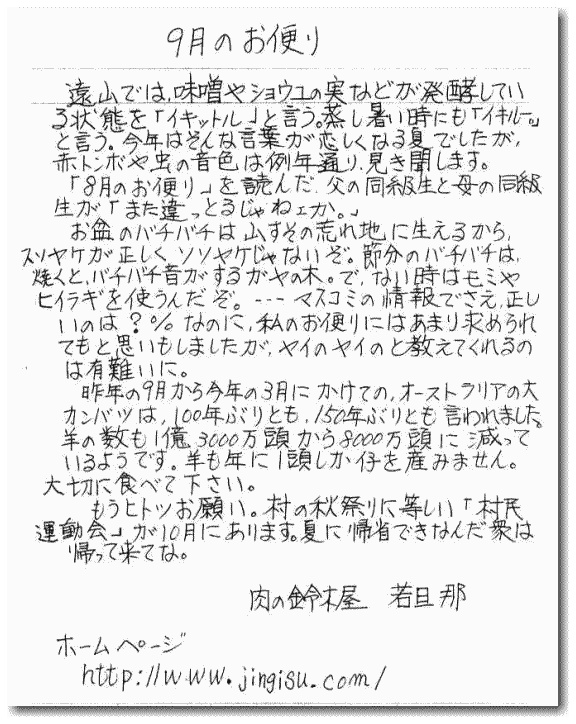 9月のお便り
遠山では、味噌やショウユの実などが発酵してい
る状態を「イキットル」と言う。蒸し暑い時にも「イキルー。」
と言う。今年はそんな言葉が恋しくなる夏でしたが、
赤トンボや虫の音色は例年通り、見き聞します。
「8月のお便り」を読んだ、父の同級生と母の同級
生が「また違っとるじゃねェか。」
お盆のバチバチは山すその荒れ地に生えるから、
スソヤケが正しく、ソソヤケじゃないぞ。節分のバチバチは、
焼くと、バチバチ音がするガヤの木。で、ない時はモミや
ヒイラギを使うんだぞ。--- マスコミの情報でさえ、正し
いのは?%なのに、私のお便りにはあまり求められ
てもと思いもしましたが、ヤイのヤイのと教えてくれるの
は有難いに。
昨年の9月から今年の3月にかけての、オーストラリアの大
カンバツは、100年ぶりとも、150年ぶりとも言われました。
羊の数も1億3000万頭から8000万頭に減って
いるようです。羊も年に1頭しか仔を産みません。
大切に食べて下さい。
もうヒトツお願い。村の秋祭りに等しい「村民
運動会」が10月にあります。夏に帰省できなんだ衆は
帰って来てな。
肉の鈴木屋 若旦那
ホームページ
http://www.jingisu.com/